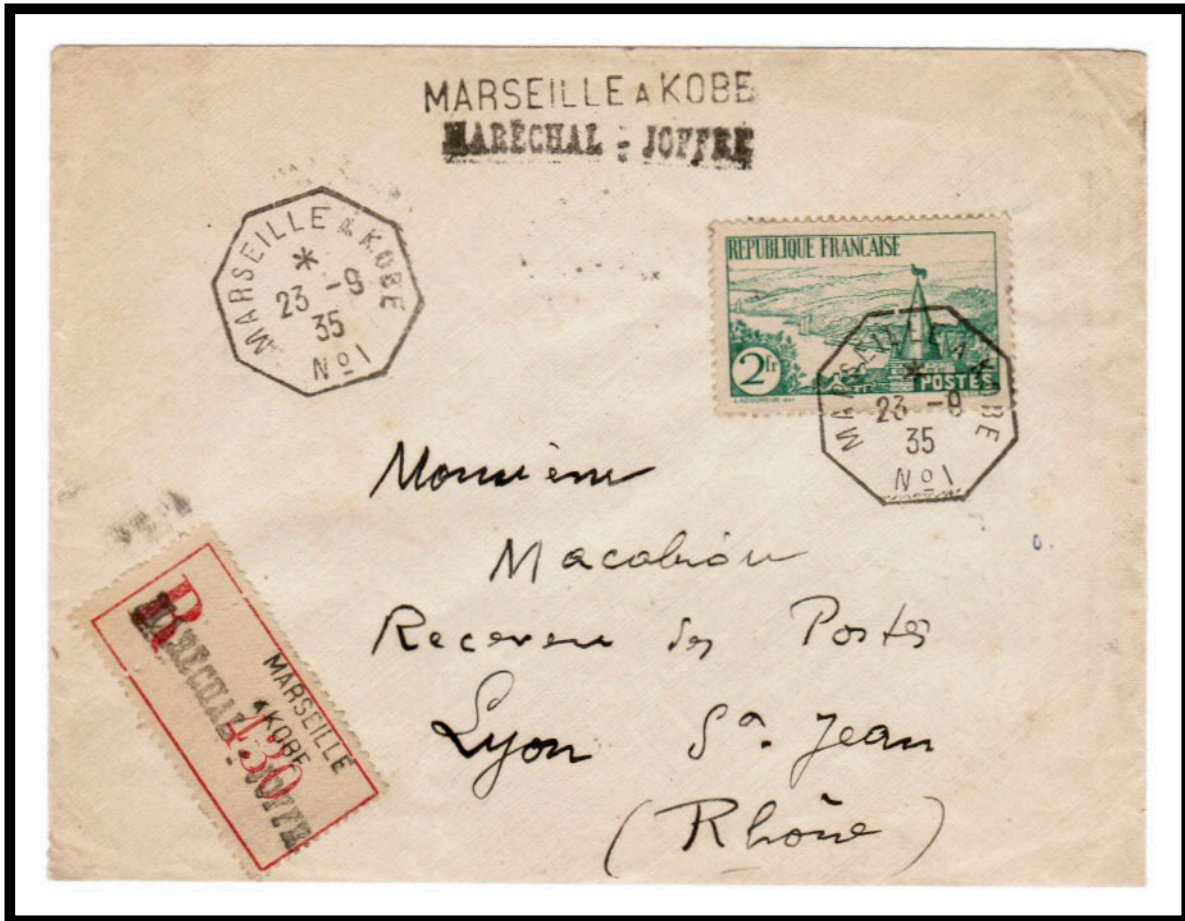 MARSEILLE A KOBE
MARÉCHAL - JOFFRE
MARSEILLE A KOBE
*
23 -9
35
Nº 1
REPUBLIQUE FRANÇAISE
2fr
POSTES
MARSEILLE A KOBE
*
23 -9
35
Nº 1
Monsieur
Receveur des Postes
Lyon St. Jean
(Rhône)
R
MARSEILLE
A KOBE
MARÉCHAL - JOFFRE